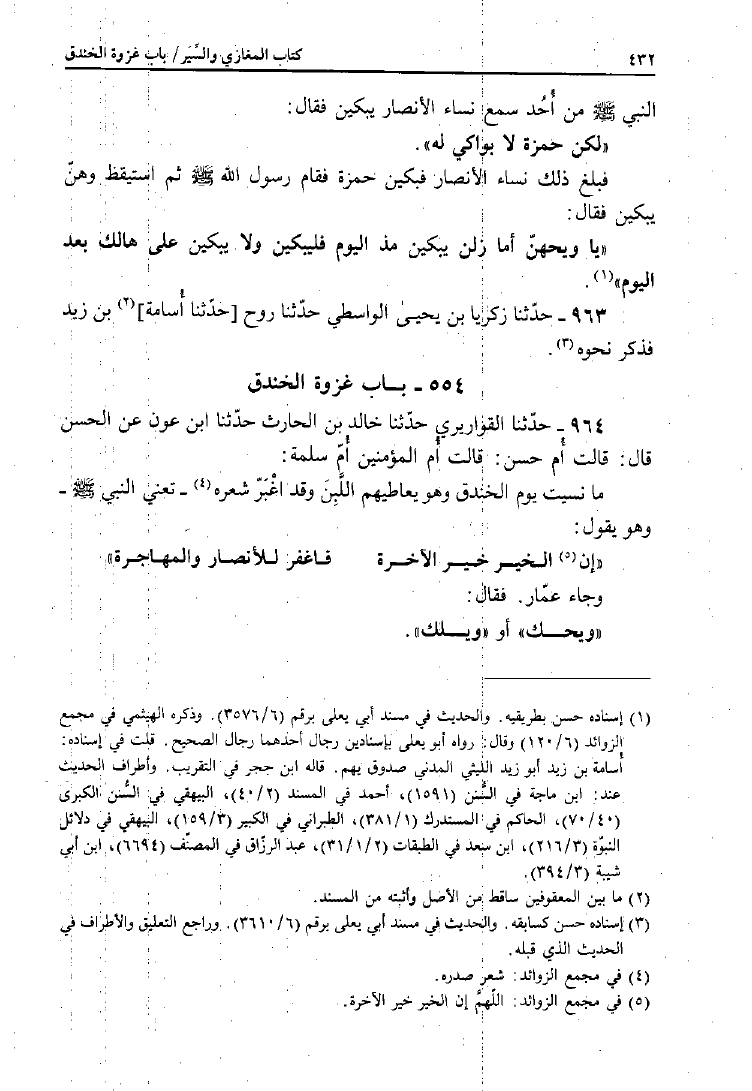 ٤٣٢ كتاب المغازي والسِّيَر/ باب غزوة الخندق
النبي ﷺ من أُحُد سمع نساء الأنصار يبكين فقال:
«لكن حمزة لا بواكي له».
فبلغ ذلك نساء الأنصار فبكين حمزة فقام رسول الله ﷺ ثم استيقظ وهنّ
يبكين فقال:
«يا ويحهنّ أما زلن يبكين مذ اليوم فليبكين ولا يبكين على هالك بعد
اليوم»(١).
٩٦٣ ـ حدّثنا زكريا بن يحيىٰ الواسطي حدّثنا روح [حدّثنا أُسامة](٢) بن زيد
فذكر نحوه(٣).
٥٥٤ ـ بـاب غزوة الخندق
٩٦٤ ـ حدّثنا القواريري حدّثنا خالد بن الحارث حدّثنا ابن عون عن الحسن
قال: قالت أُم حسن: قالت أُم المؤمنين أُمّ سلمة:
ما نسيت يوم الخندق وهو يعاطيهم اللَّبِنَ وقد اغْبَرّ شعره(٤) ـ تعني النبي ﷺ ـ
وهو يقول:
«إن(٥) الخير خير الآخرة فاغفر للأنصار والمهاجرة»
وجاء عمّار. فقال:
«ويحك» أو «ويلك».
(١) إسناده حسن بطريقيه. والحديث في مسند أبي يعلى برقم (٣٥٧٦/٦). وذكره الهيثمي في مجمع
الزوائد (١٢٠/٦) وقال: رواه أبو يعلى بإسنادين رجال أحدهما رجال الصحيح. قلت في إسناده:
أُسامة بن زيد أبو زيد الليثي المدني صدوق يهم. قاله ابن حجر في التقريب. وأطراف الحديث
عند: ابن ماجة في السُّنن (١٥٩١)، أحمد في المسند (٤٠/٢)، البيهقي في السُّنن الكبرى
(٧٠/٤٠)، الحاكم في المستدرك (٣٨١/١)، الطبراني في الكبير (١٥٩/٣)، البيهقي في دلائل
النبوّة (٢١٦/٣)، ابن سعد في الطبقات (٣١/١/٢)، عبد الرزّاق في المصنّف (٦٦٩٤)، ابن أبي
شيبة (٣٩٤/٣).
(٢) ما بين المعقوفين ساقط من الأصل وأثبته من المسند.
(٣) إسناده حسن كسابقه. والحديث في مسند أبي يعلى برقم (٣٦١٠/٦). وراجع التعليق والأطراف في
الحديث الذي قبله.
(٤) في مجمع الزوائد: شعر صدره.
(٥) في مجمع الزوائد: اللّهمَّ إن الخير خير الآخرة.